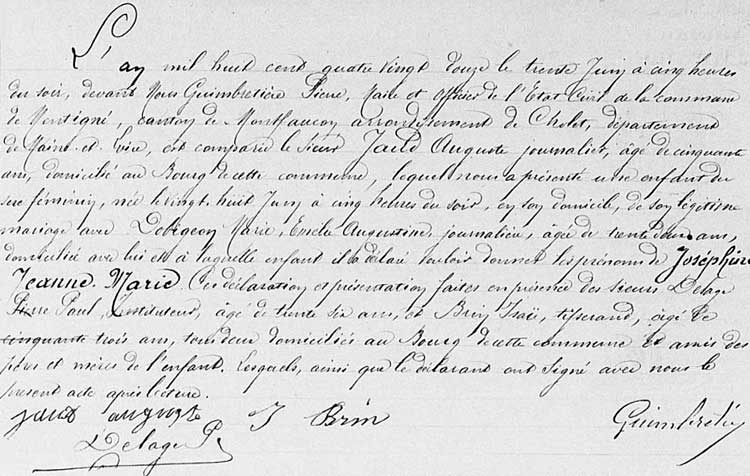 L'an mil huit cent quatre vingt douze le trente Juin à cinq heures
du soir, devant Nous Guimbretière Pierre, Maire et officier de l'Etat Civil de la commune
de Montigné, canton de Montfaucon arrondissement de Cholet, département
de Maine-et-Loire, est comparu le sieur Auguste journalier, âgé de cinquante
ans, domicilié au Bourg de cette commune, lequel nous a présenté une enfant du
sexe féminin, née le vingt huit Juin à cinq heures du soir, en son domicile, de son légitime
mariage avec Marie, Augustine, journalière, âgée de trente deux ans,
domiciliée avec lui et à laquelle enfant il a déclaré vouloir donner les prénoms de Joséphine
Jeanne Marie Ces déclaration et présentation faites en présence des sieurs Delage
Pierre Paul, Instituteur, âgé de trente six ans, et Brin Isaï, tisserand, âgé de
cinquante trois ans, tous deux domiciliés au Bourg de cette commune et amis des
pères et mères de l'enfant. Lesquels, ainsi que le déclarant ont signé avec nous le
présent acte après lecture.
auguste J Brin
Delage P.